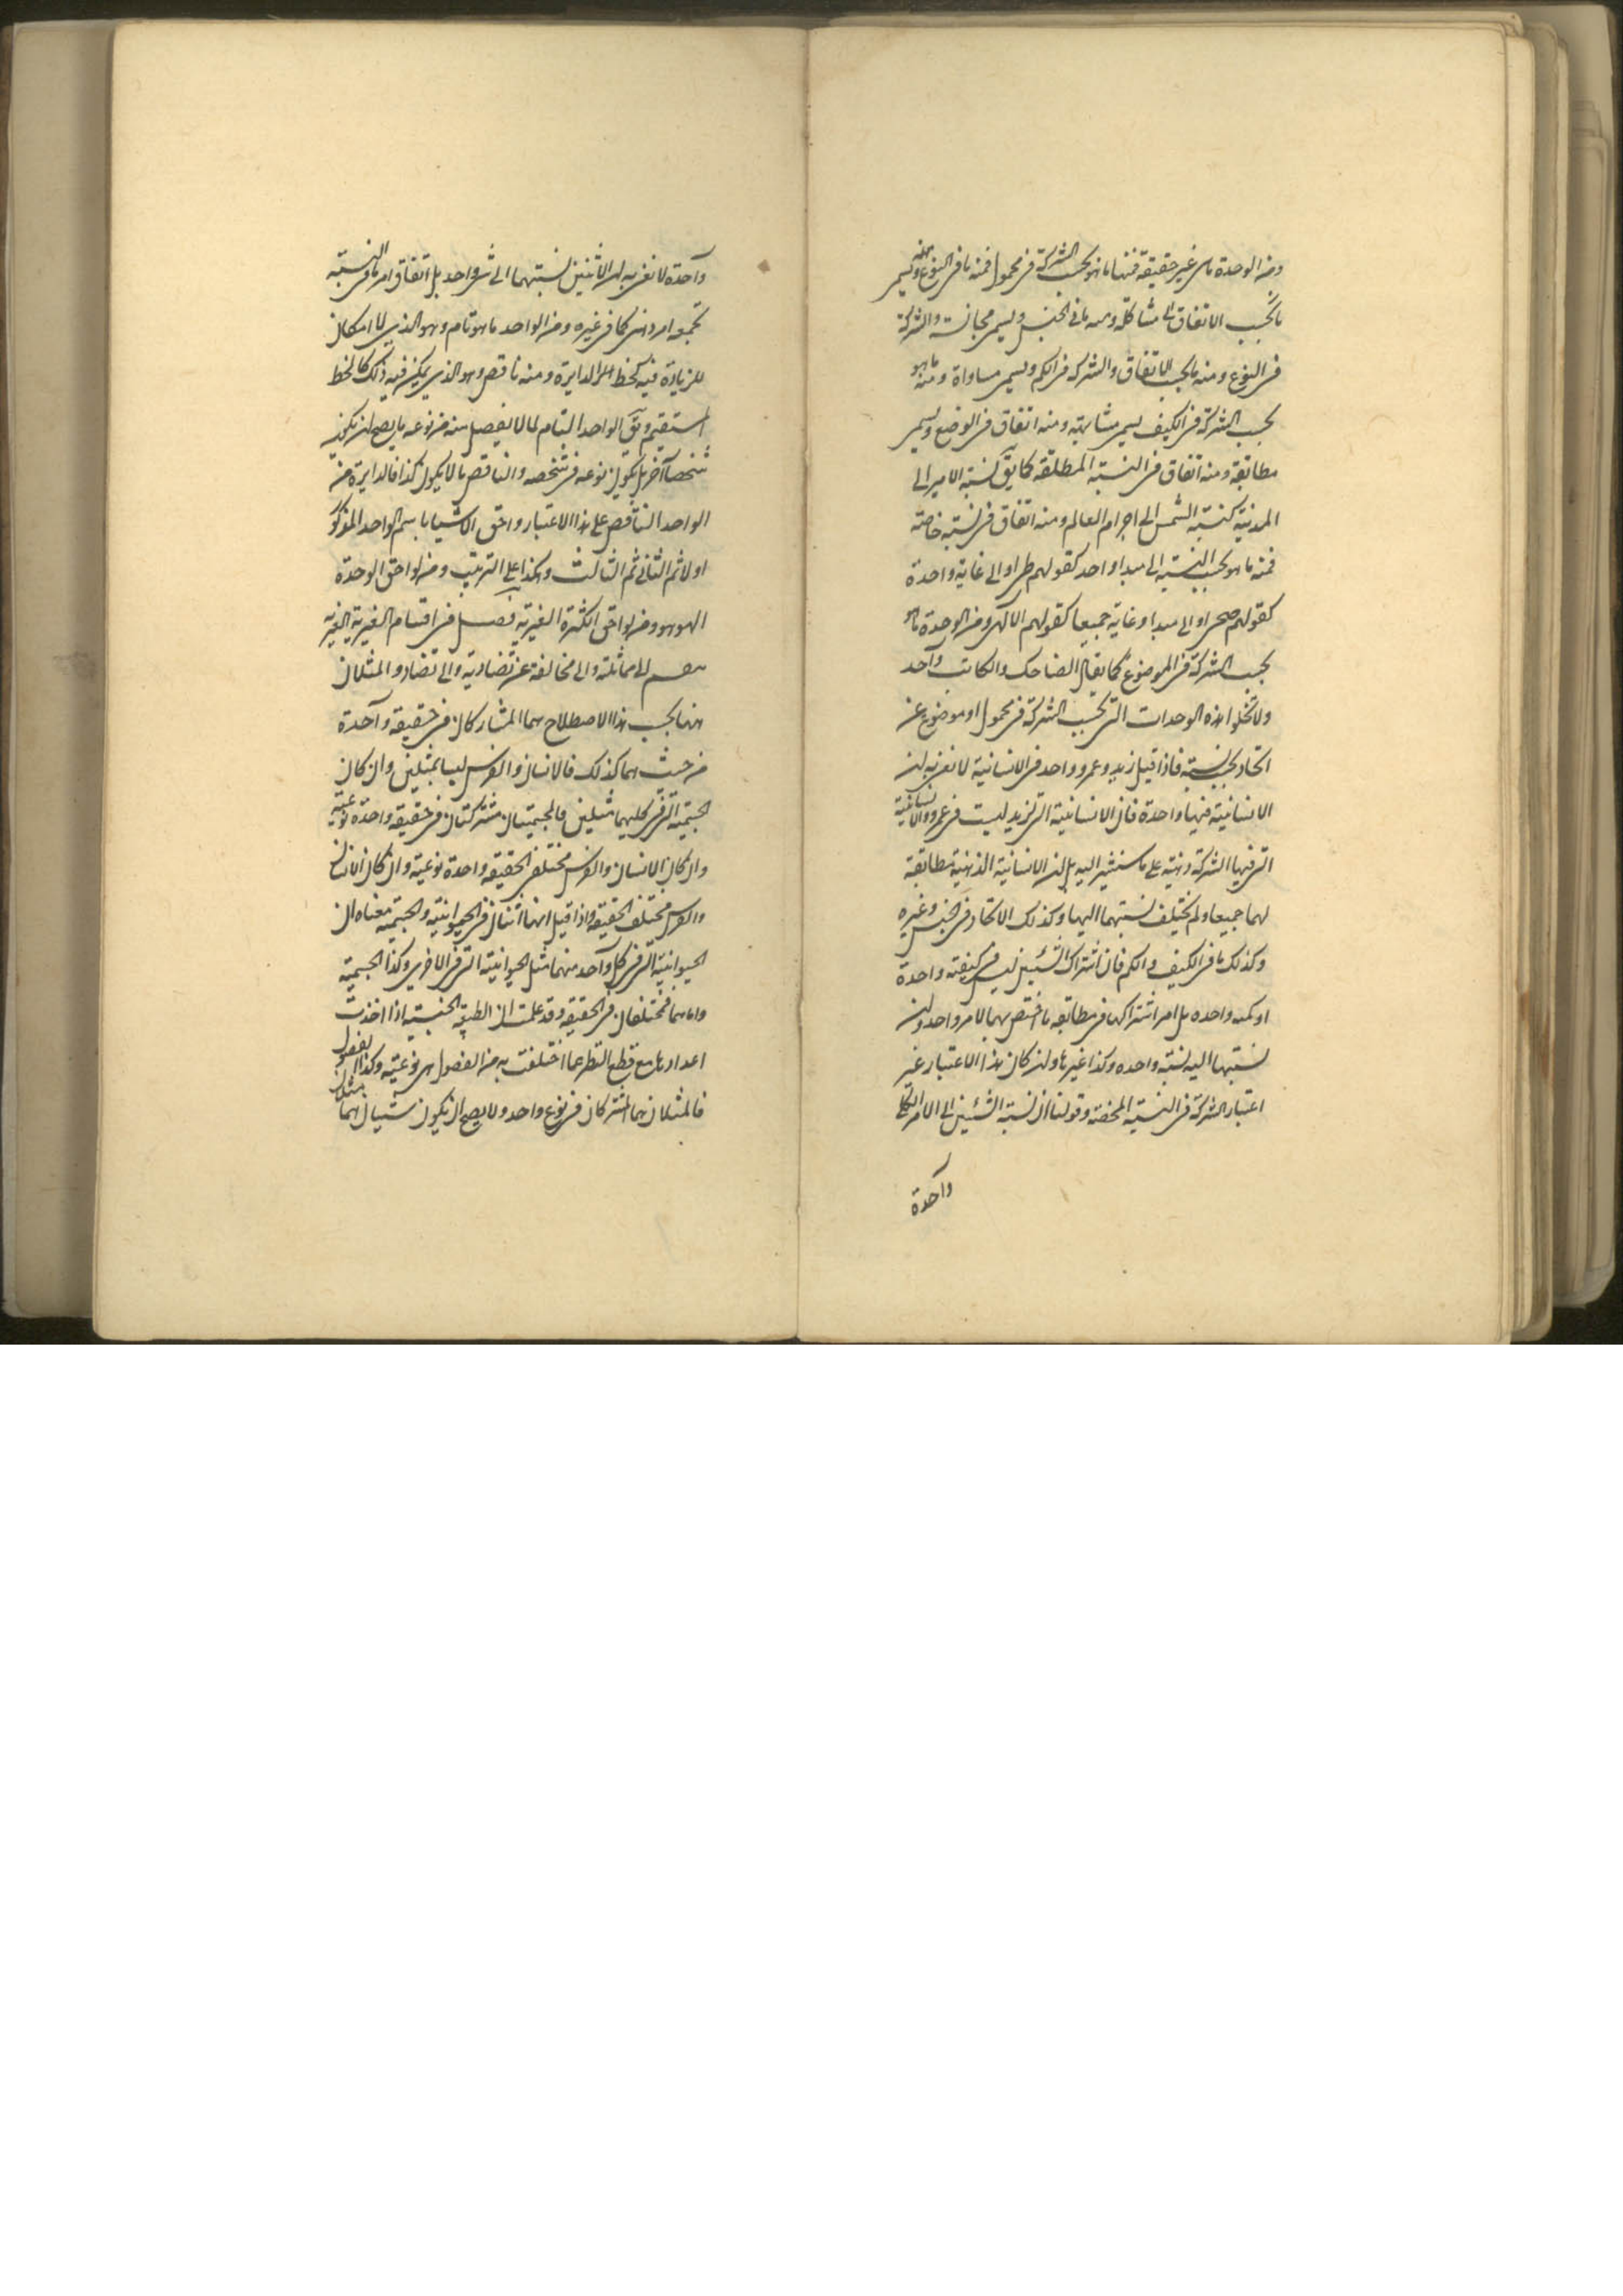 ومن الوحدة ما هى غير حقيقية فمنها ما هو بحسب الشركة فى محمول فمنه ما فى النوع ويسمى
بحسب الاتفاق مشاكلة ومنه ما فى الجنس ويسمى مجانسة والشركة
فى النوع ومنه ما بحسب الاتفاق والشركة فى الكم ويسمى مساواة ومنه ما هو
بحسب الشركة فى الكيف يسمى مشابهة ومنه اتفاق فى الوضع ويسمى
مطابقة ومنه اتفاق فى النسبة المطلقة كما يق نسبة الامير الى
المدينة كنسبة الشمس الى اجرام العالم ومنه اتفاق فى نسبة خاصة
فمنه ما هو بحسب النسبة الى مبدا واحد كقولهم طبى او الى غاية واحدة
كقولهم صحى او الى مبدا وغاية جميعا كقولهم الالهى ومن الوحدة ما هو
بحسب الشركة فى الموضوع كما يقال الضاحك والكاتب واحد
ولا تخلوا هذه الوحدات التى بحسب الشركة فى محمول او موضوع عن
اتحاد بحسب نسبة فاذا قيل زيد وعمرو واحد فى الانسانية لا نعنى به ان
الانسانية فيهما واحدة فان الانسانية التى لزيد ليست فى عمرو والانسانية
التى فيها الشركة ذهنية على ما سنشير اليه بل ان الانسانية الذهنية مطابقة
لهما جميعا ولم يختلف نسبتهما اليها وكذلك الاتحاد فى الجنس وغيره
وكذلك ما فى الكيف والكم فان اشتراك الشيئين ليس فى كيفية واحدة
او كمية واحدة بل امر اشتراكهما فى مطابقة ما اختص بهما لامر واحد وان
نسبتهما اليه نسبة واحده وكذا غيرها وان كان هذا الاعتبار غير
اعتبار الشركة فى النسبة المحضة وقولنا ان نسبة الشيئين الى الامر الكلى
واحدة
واحدة لا نعنى به ان الاثنين نسبتهما الى شى واحد بل اتفاق امر ما فى النسبة
كما فى غيره ومن الواحد ما هو تام وهو الذى لا امكان
للزيادة فيه كخط الدايرة ومنه ناقص وهو الذى يمكن فيه ذلك كالخط
المستقيم ويق الواحد التام لما لا يفصل منه من نوعه ما يصح ان يكون
شخصا آخر بل يكون نوعه فى شخصه والناقص ما لا يكون كذا فالدايرة من
الواحد الناقص على هذا الاعتبار واحق الاشيا باسم الواحد المذكور
اولا ثم الثانى ثم الثالث وهكذا على الترتيب ومن لواحق الوحدة
الهوهو ومن لواحق الكثرة الغيرية فصل فى اقسام الغيرية الغيرية
الى مماثلة والى مخالفة غير تضادية والى تضاد والمثلان
هنا بحسب هذا الاصطلاح هما المشاركان فى حقيقة واحدة
من حيث هما كذلك فالانسان والفرس ليسا بمثلين وان كان
الجسمية التى فى كليهما مثلين فالجسميتان مشتركتان فى حقيقة واحدة نوعية
وان كان الانسان والفرس مختلفى الحقيقة واحدة نوعية وان كان الانسان
والفرس مختلف الحقيقة واذا قيل انهما اثنان فى الحيوانية والجسمية معناه ان
الحيوانية التى فى كل واحد منهما مثل الحيوانية التى فى الاخرى وكذا الجسمية
واما هما فمختلفان فى الحقيقة وقد علمت ان الطبيعة الجنسية اذا اخذت
اعدادها مع قطع النظر عما اختلفت به من الفصول هى نوعية وكذا الفصول
فالمثلان هما المشتركان فى نوع واحد ولا يصح ان يكون شيئان هما مثلان